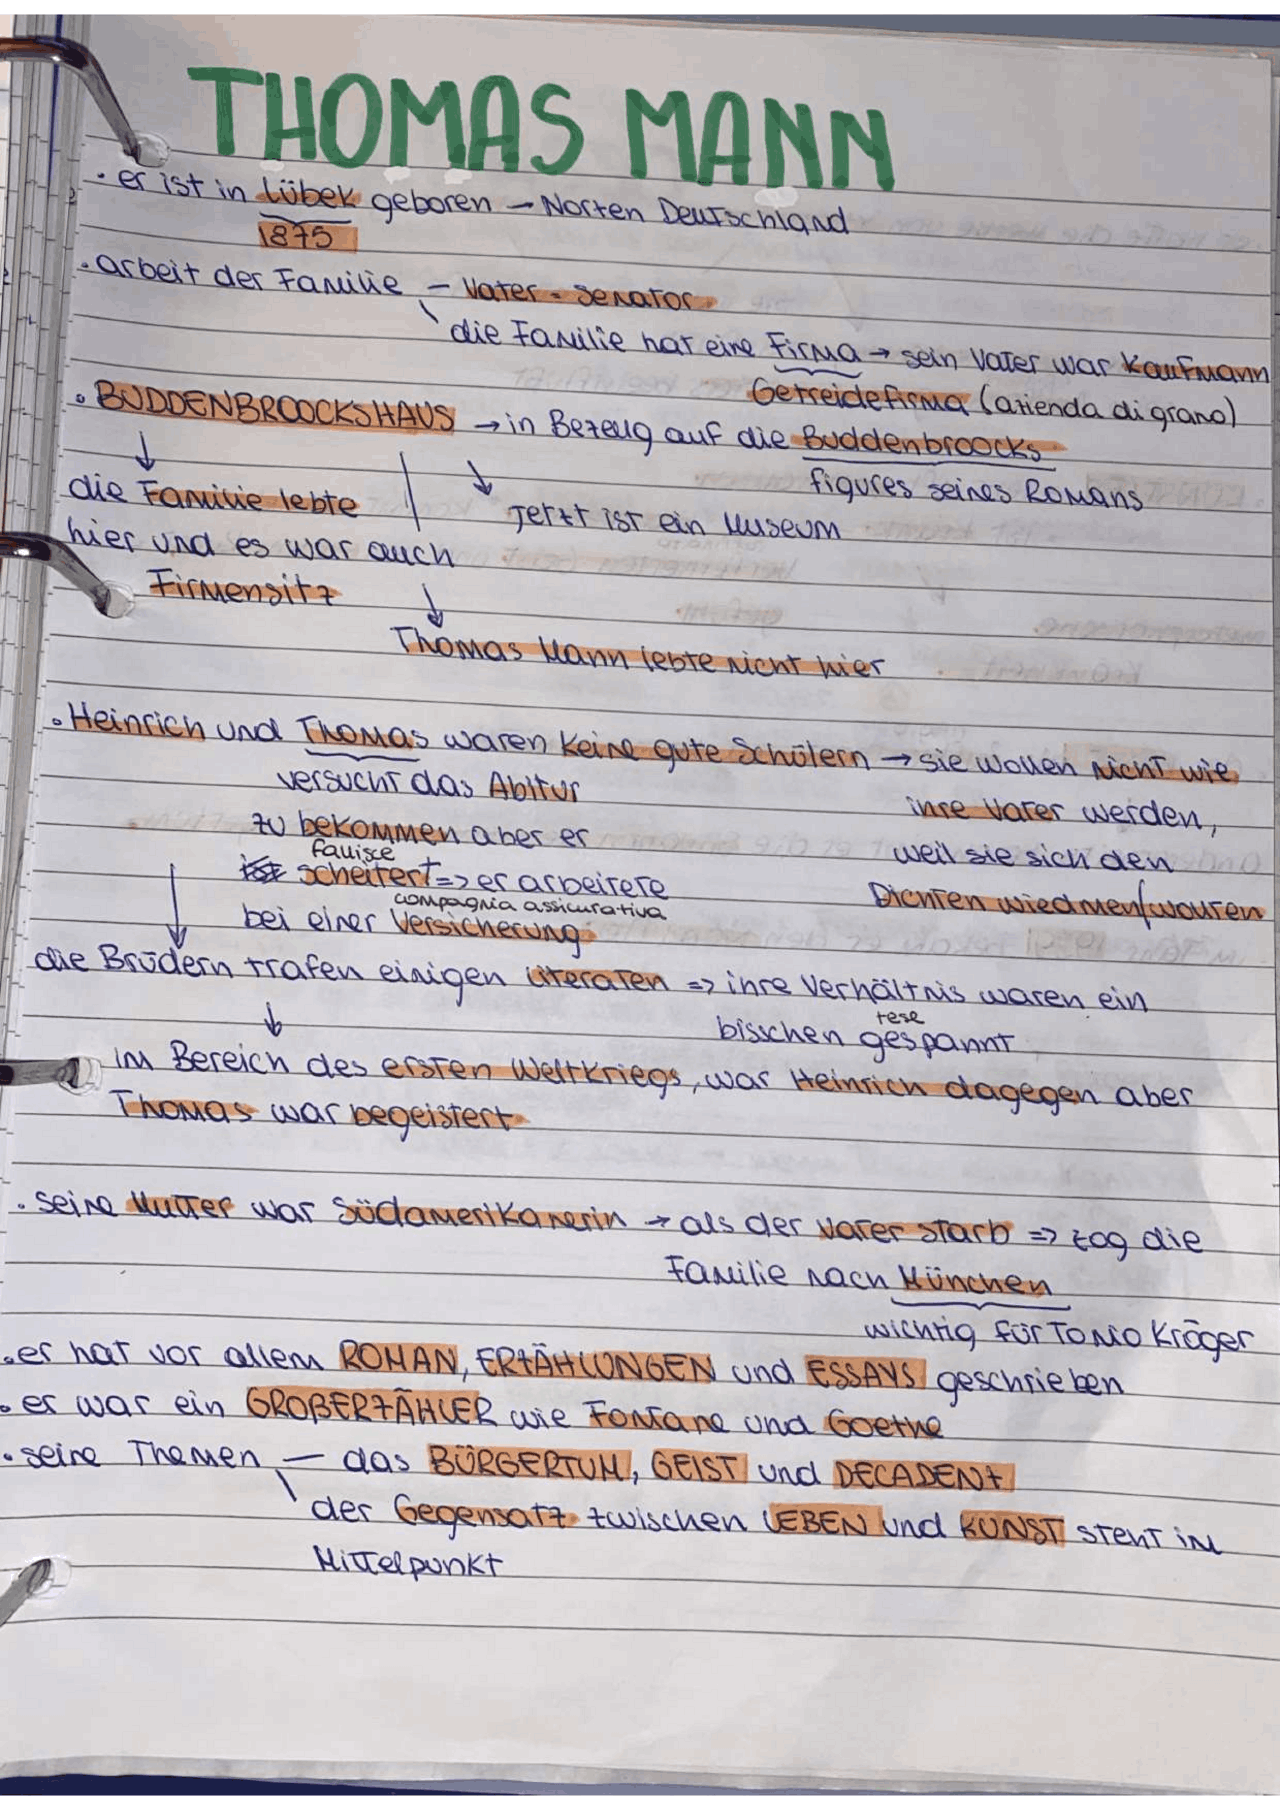 THOMAS MANN
• er ist in Lübek geboren — Norten Deutschland
1875
• arbeit der Familie — Vater = Senator
die Familie hat eine Firma → sein Vater war Kaufmann
Getreidefirma (azienda di grano)
• BUDDENBROOCKSHAUS → in Bezeug auf die Buddenbroocks
figures seines Romans
↓ die Familie lebte
hier und es war auch
Firmensitz
↓ Jetzt ist ein Museum
↓ Thomas Mann lebte nicht hier
• Heinrich und Thomas waren keine gute Schülern → sie wollen nicht wie
ihre Vater werden,
weil sie sich den
Dichten wiedmen wollten
versucht das Abitur
zu bekommen aber er
fallisce
scheitert => er arbeitete
compagnia assicurativa
bei einer Versicherung
die Brüdern trafen einigen Literaten => ihre Verhältnis waren ein
tese
bisschen gespannt
↓
im Bereich des ersten Weltkriegs, war Heinrich dagegen aber
Thomas war begeistert
• seine Mutter war Südamerikanerin → als der Vater starb => zog die
Familie nach München
wichtig für Tonio Kröger
• er hat vor allem ROMAN, ERZÄHLUNGEN und ESSAYS geschrieben
• er war ein GROßERZÄHLER wie Fontane und Goethe
• seine Themen — das BÜRGERTUM, GEIST und DECADENZ
der Gegensatz zwischen LEBEN und KUNST steht im
Mittelpunkt